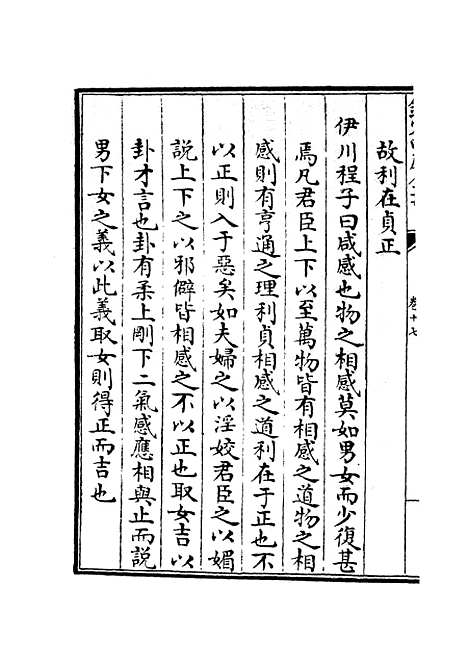 卷十七
故利在貞正
伊川程子曰咸感也物之相感莫如男女而少復甚
焉凡君臣上下以至萬物皆有相感之道物之相
感則有亨通之理利貞相感之道利在于正也不
以正則入于惡矣如夫婦之以淫姣君臣之以媚
説上下之以邪僻皆相感之不以正也取女吉以
卦才言也卦有柔上剛下二氣感應相與止而説
男下女之義以此義取女則得正而吉也